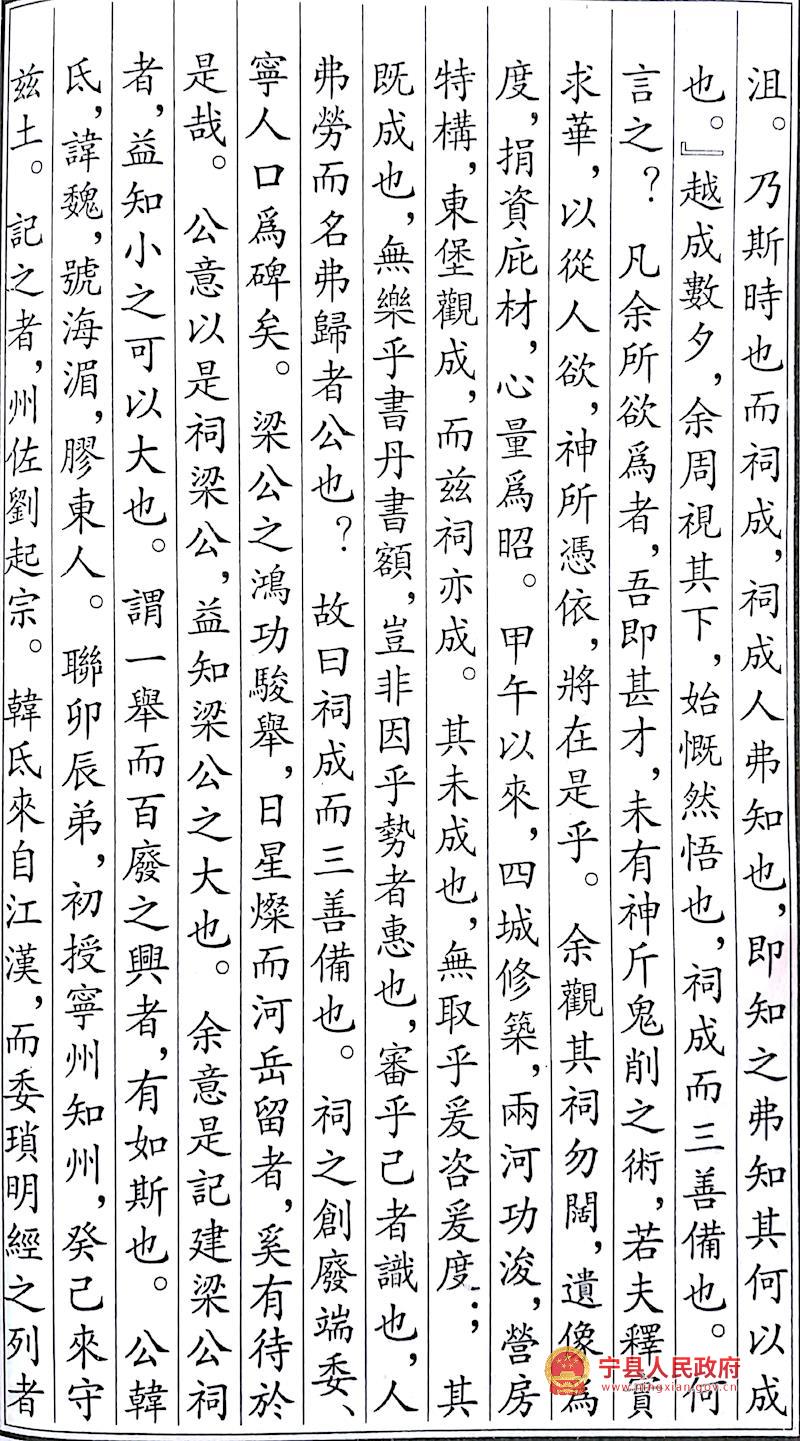 沮。 乃斯時也而祠成，祠成人弗知也，即知之弗知其何以成
也。』越成數夕，余周視其下，始慨然悟也，祠成而三善備也。何
言之？ 凡余所欲爲者，吾即甚才，未有神斤鬼削之術，若夫釋質
求華，以從人欲，神所憑依，將在是乎。 余觀其祠勿闊，遺像爲
度，捐資庇材，心量爲昭。 甲午以來，四城修築，兩河功浚，營房
特構，東堡觀成，而兹祠亦成。 其未成也，無取乎爰咨爰度；其
既成也，無樂乎書丹書額，豈非因乎勢者惠也，審乎己者識也，人
弗勞而名弗歸者公也？ 故曰祠成而三善備也。 祠之創廢端委、
寧人口爲碑矣。 梁公之鴻功駿舉，日星燦而河岳留者，奚有待於
是哉。 公意以是祠梁公，益知梁公之大也。 余意是記建梁公祠
者，益知小之可以大也。 謂一舉而百廢之興者，有如斯也。 公韓
氏，諱魏，號海湄，膠東人。 聯卯辰弟，初授寧州知州，癸己來守
兹土。 記之者，州佐劉起宗。 韓氏來自江漢，而委瑣明經之列者
宁县人民政府
www.ningxian.gov.cn